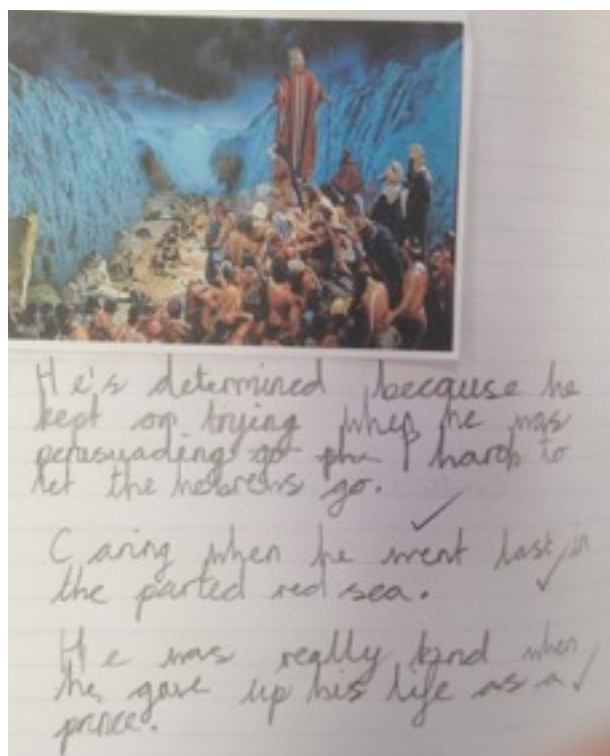 He's determined because he
kept on trying when he was
persuading to haroh to
let the hebrews go.
Caring when he went last in
the parted red sea.
He was really kind when
he gave up his life as a
prince.